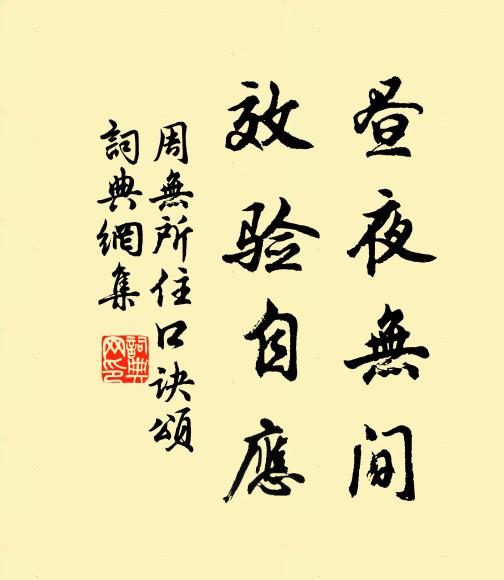 昼夜無间
效验自應
周無所住口訣頌
詞典網集
詞典网印